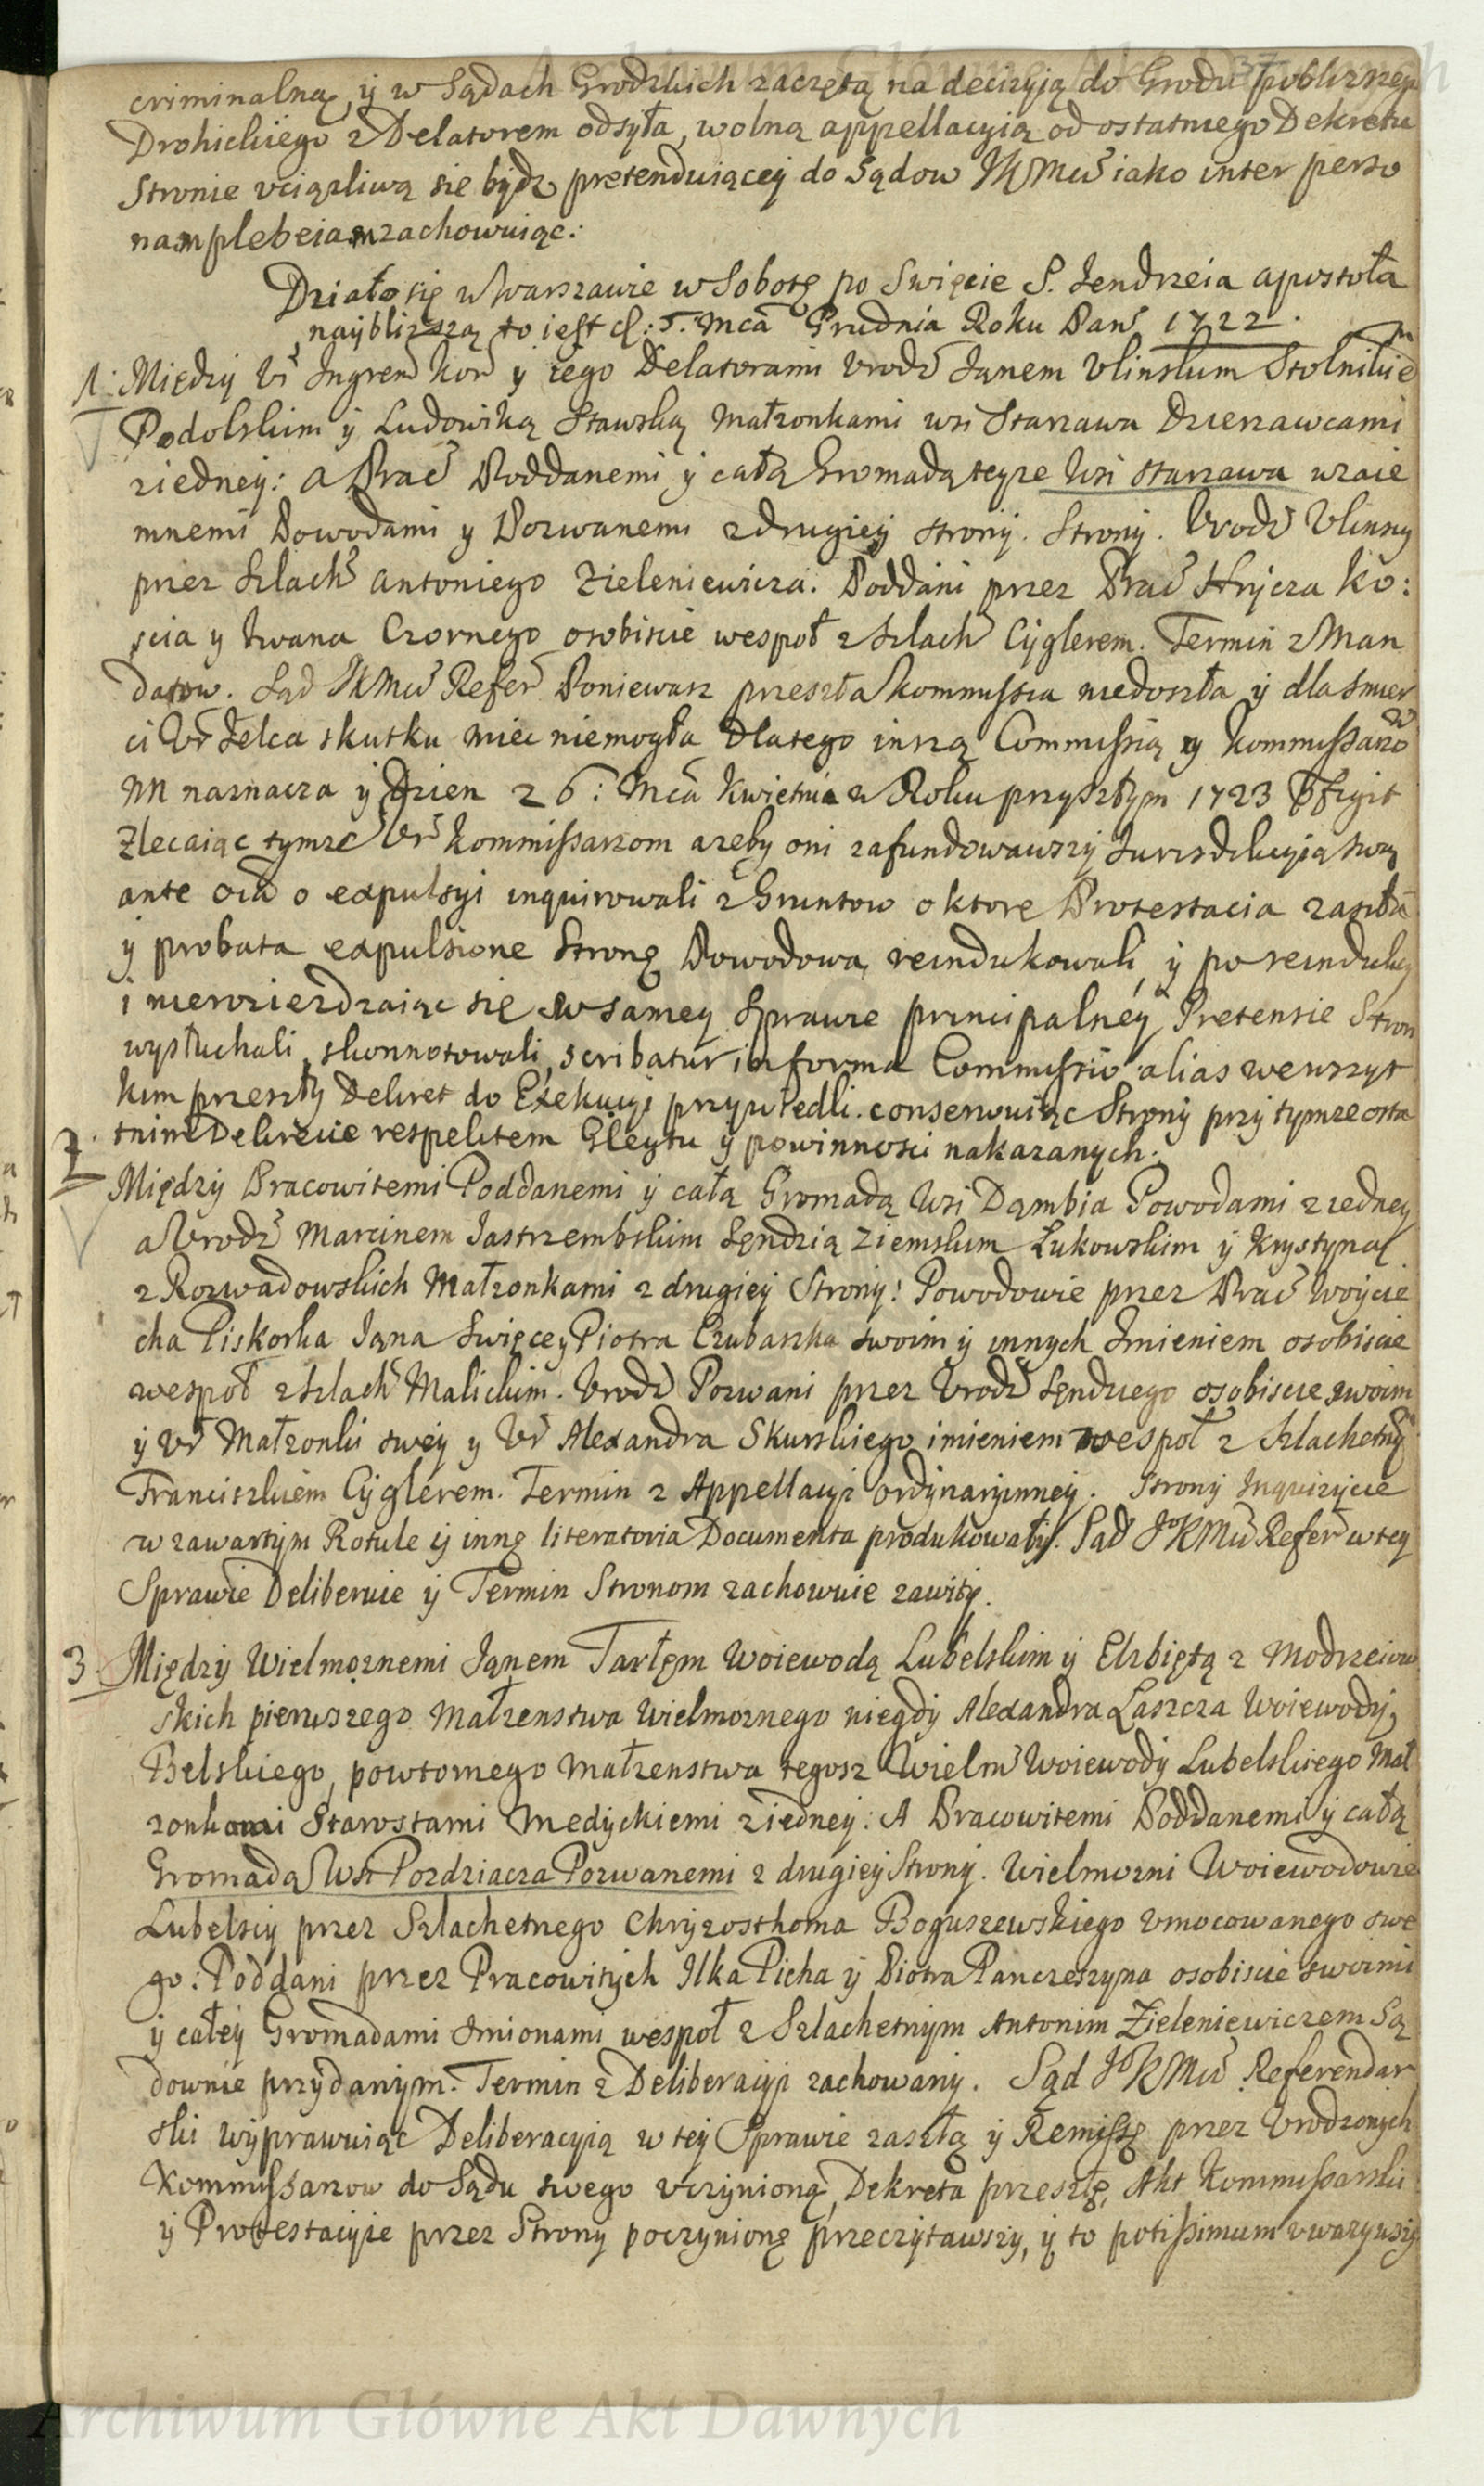 criminalną, ÿ w Sądach Grodzkich zaczętą na decizyią do Grodu pobliższego
Drohickiego z Delatorem odsyła, wolną appellacyią od ostatniego Dekretu
Stronie vciązliwą się bydz pretenduiącey do Sądow JKMci iako inter perso
nam plebeiam zachowuiąc:
Działo się w Warszawie w Sobotę po Swięcie S. Jendrzeia apostoła
nayblizszą to iest d: 5. Mca Grudnia Roku Pans 1722.
1. Między Ur Ingrem Kor y iego Delatorami Urodz Janem Ulinskim Stolnikiem
Podolskim ÿ Ludowiką Stawską Małzonkami wsi Starzawa Dzierzawcami
ziedney: a Prac Poddanemi ÿ całą Gromadą teyze Wsi Starzawa wzaie
mnemi Powodami y Pozwanemi zdrugiey strony. Strony. Urodz Ulinsky
przez Szlach Antoniego Zieleniewicza: Poddani przez Prac Hrycza Ko:
scia y Iwana Czornego osobiscie wespoł z Szlach Cyglerem. Termin z Man
datow. Sąd JKMci Refer Poniewasz przeszła Kommissia niedoszła ÿ dla smier
ci Ur Zelca skutku miec niemogła Dlatego inszą Commissią y Kommissarzow
NN naznacza ÿ Dzien 26: Mca Kwietnia w Roku przyszłym 1723 Pffigit
Zlecaiąc tymze Ur Kommissarzom azeby oni zafundowawszy Jurisdikcyią swą
ante oia o expulsyi inquirowali z Gruntow o ktore Protestacia zaszła
ÿ probata expulsione Stronę Powodową reindukowali, ÿ po reindukcy
i niewzierdzaiąc się w samey Sprawie principalney Pretensie Stron
wysłuchali, skonnotowali, scribatur in forma Commissio alias wewszyt
kim przeszły Dekret do Exekucyi przywiedli. conserwuiąc Strony przy tymze osta
tnim Dekrecie respektem Gleytu ÿ powinnosci nakazanych.
2. Między Pracowitemi Poddanemi ÿ całą Gromadą Wsi Dąmbia Powodami ziedney
a Urodz Marcinem Jastrzembskim Sędzią Ziemskim Łukowskim ÿ Krystyną
z Rozwadowskich Małzonkami z drugiey Strony: Powodowie przez Prac Woycie
cha Piskorka Jana Swięcey Piotra Czubaszka swoim ÿ innych Imieniem osobiscie
wespoł z Szlach Malickim. Urodz Pozwani przez Urodz Sędziego osobiscie swoim
ÿ Ur Małzonki swey y Ur Alexandra Skurskiego imieniem wespoł z Szlachetny
Franciszkiem Cyglerem. Termin z Appellacyi ordynaryinney. Strony Inquizycie
w zawartym Rotule ÿ inne literatoria Documenta produkowały. Sąd JoKMci Refer w tey
Sprawie Deliberuie ÿ Termin Stronom zachowuie zawity.
3. Między Wielmoznemi Janem Tarłem Woiewodą Lubelskim ÿ Elzbietą z Modrzeiow
skich pierwszego Małzenstwa Wielmoznego niegdy Alexandra Łaszcza Woiewody
Bełskiego, powtornego Małzenstwa tegosz Wielm Woiewody Lubelskiego Mał
zonkami Starostami Medyckiemi ziedney: A Pracowitemi Poddanemi ÿ całą
Gromadą Wsi Pozdziacza Pozwanemi z drugiey Strony. Wielmozni Woiewodowie
Lubelscy przez Szlachetnego Chryzosthoma Boguszewskiego Vmocowanego swe
go: Poddani przez Pracowitych Ilka Picha ÿ Piotra Panczeszyna osobiscie swoimi
ÿ całey Gromadami Imionami wespoł z Szlachetnym Antonim Zieleniewiczem Są
downie przydanym. Termin z Deliberacyi zachowany. Sąd JoKMci Referendar
ski wyprawuiąc Deliberacyią w tey Sprawie zaszłą ÿ Remissę przez Urodzonych
Kommissarzow do Sądu swego vczynioną, Dekreta przeszłe, Akt Kommissarski
ÿ Protestacyie przez Strony poczynionę przeczytawszy, ÿ to potissimum vwazywszy
Archiwum Główne Akt Dawnych